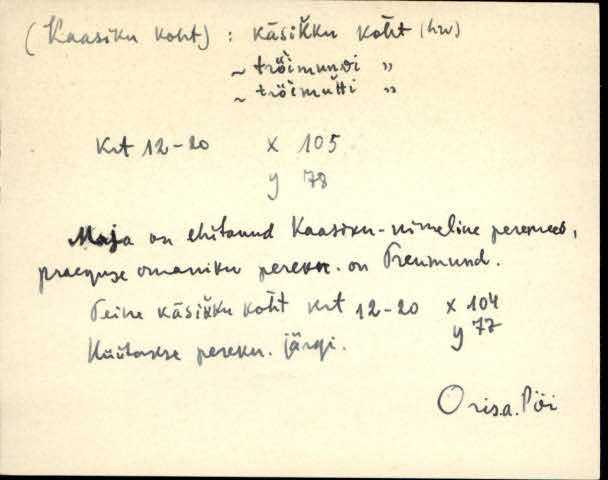 (Kaasiku koht) : kàsik̆ku kòht (hrv)
~ trȫimundi "
~ trȫimùtti "
Krt 12-20 x 105
y 78
Maja on ehitanud Kaasiku-nimeline peremees,
praeguse omaniku perekn. on Treumund.
Teine kàsik̆ku kòht krt 12-20 x 104
y 77
Hüütakse perekn. järgi.
Oris.a. Pöi